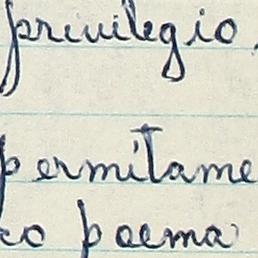 privilegio.
permítame
co poema